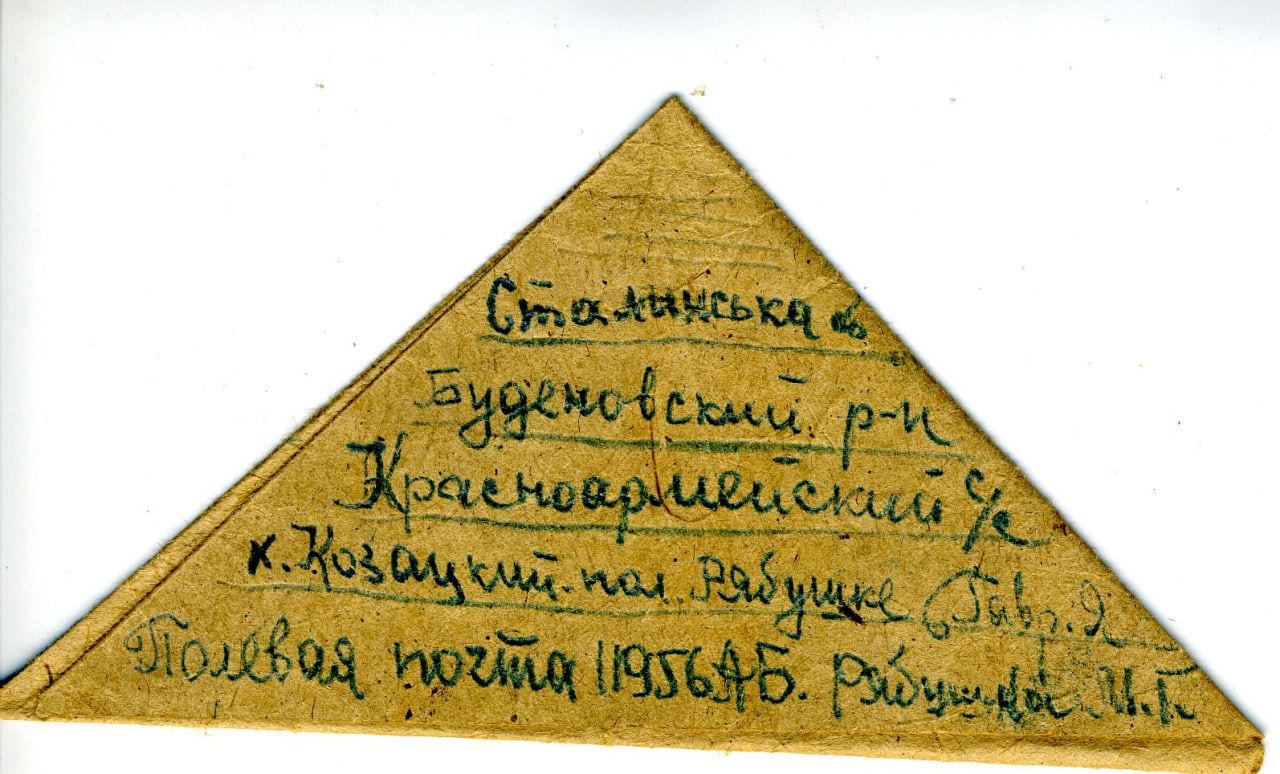 Сталинська об
Буденовский р-н
Красноармейский с/с
х. Козацкий. пол. Рябушке Гавр. Я
Полевая почта 11956АБ. Рябушка М.Г.